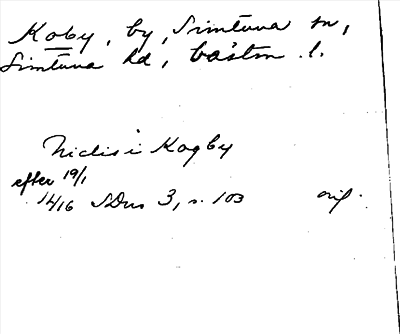 Koby, by, Simtuna sn,
Simtuna hd, Västm. l.
Niclis i Kogby
efter 19/1
1416 SDns 3, s. 103 orig.